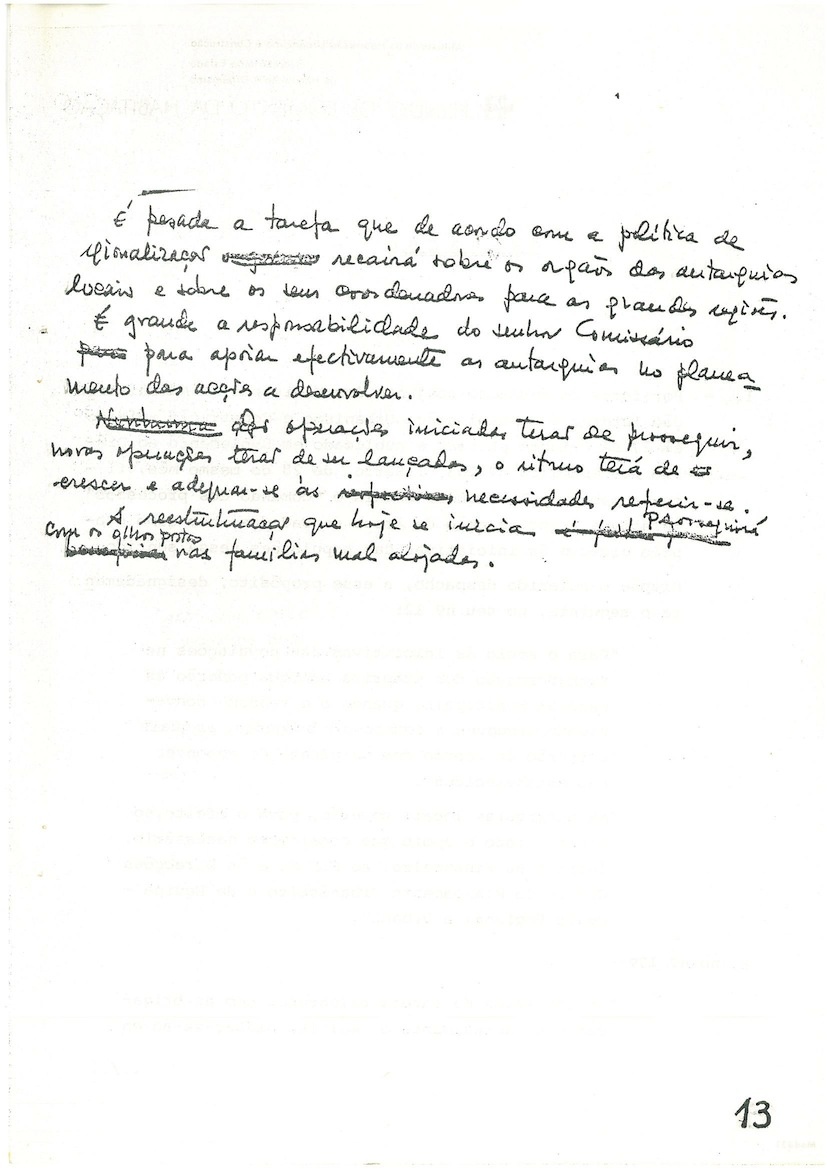 É pesada a tarefa que de acordo com a política de
regionalização recairá sobre os orgãos das autarquias
locais e sobre os seus coordenadores para as grandes regiões.
É grande a responsabilidade do senhor Comissário
para para apoiar efectivamente as autarquias no planea
mento das acções a desenvolver.
Nenhuma As operações iniciadas terão de prosseguir,
novas operações terão de ser lançadas, o ritmo terá de
crescer e adequar-se às respectivas necessidades
A reestruturação que hoje se inicia prosseguirá
com os olhos postos
nas famílias mal alojadas.
13